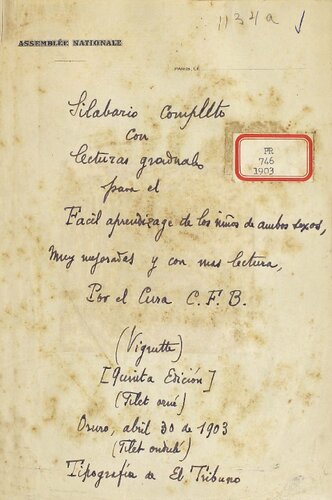 1134a
ASSEMBLÉE NATIONALE
PARIS, LE
Silabario Complto
con
Lecturas graduals
para el
PR
746
1903
Facil aprendizage de los niños de ambos sexos,
Muy mejoradas y con mas lectura,
Por el Cura C. F. B.
(Vignette)
[Quinta Edición]
(Filet orné)
Oruro, abril 30 de 1903
(Filet ondulé)
Tipografía de El Tribuno